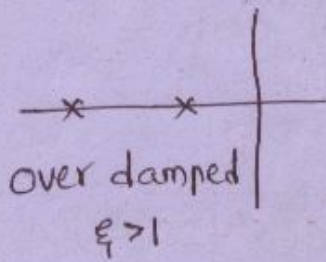 over damped
ξ >1